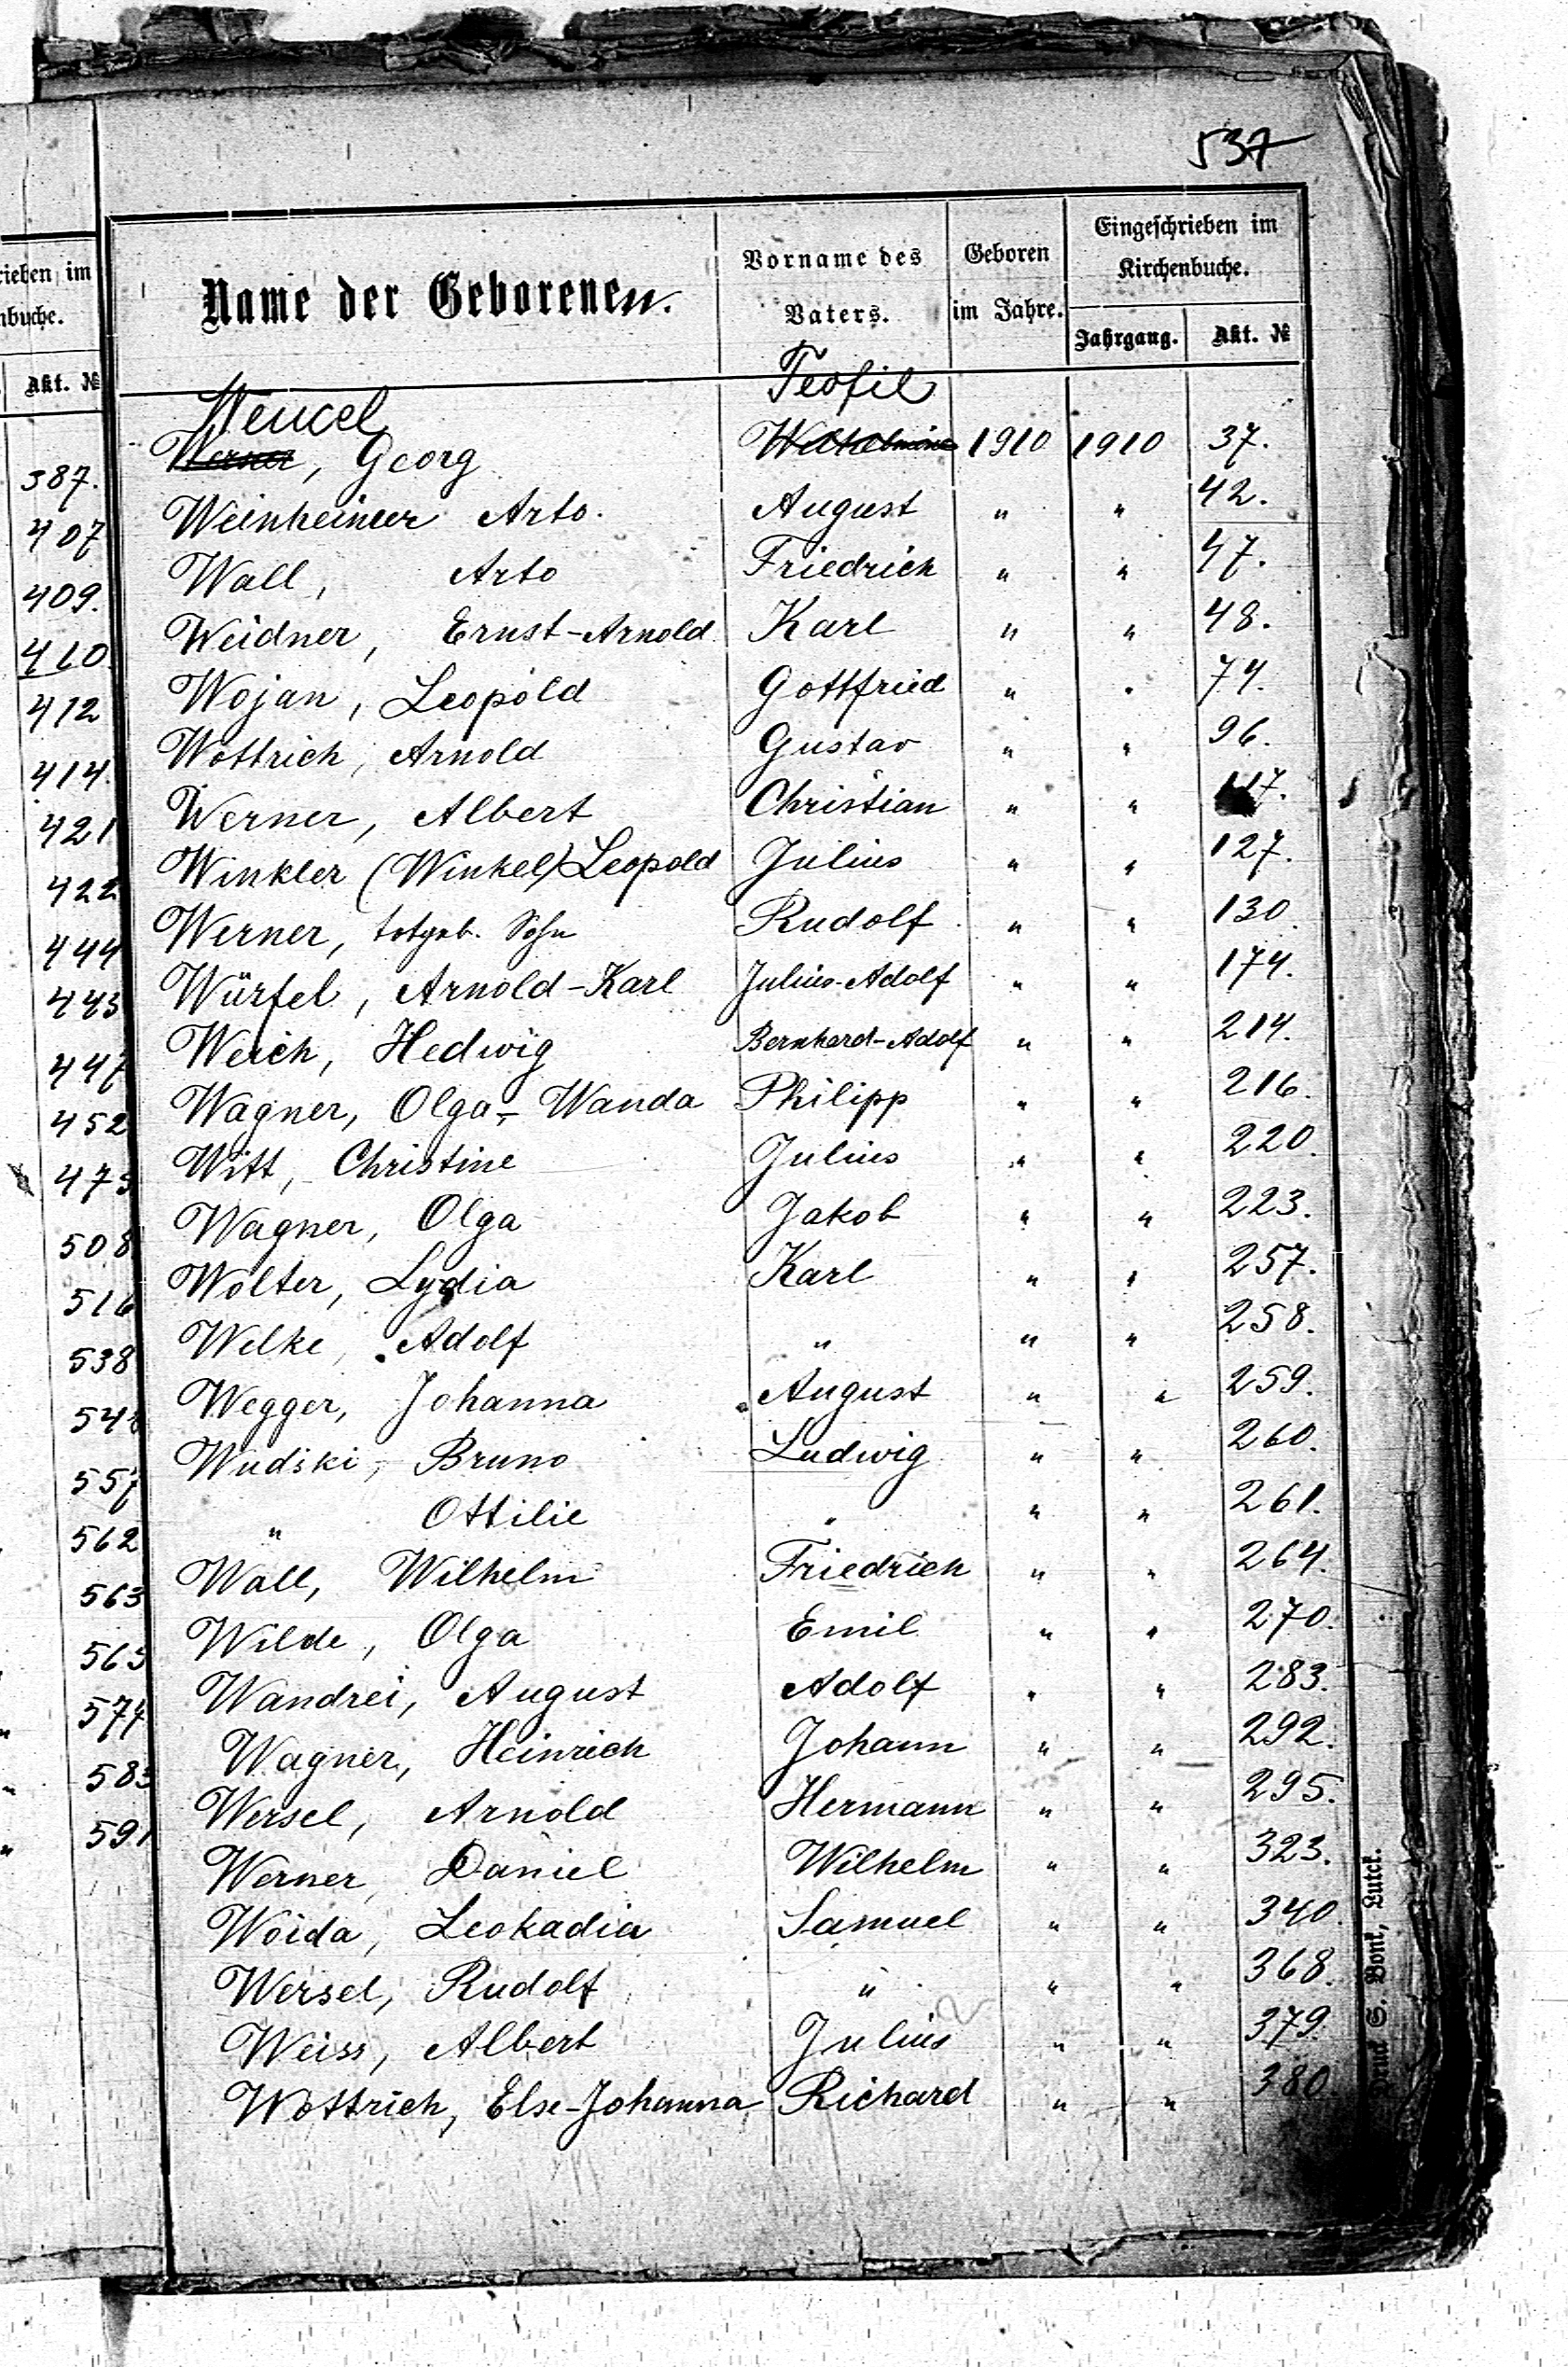 537
rieben im
nbuche.
Akt. №
387.
407
409.
410.
412
414.
421
422
444
443
447
452
473
508
516
538
548
557
562
563
565
574
583
591
Name der Geborenen. Vorname des Vaters. Geboren im Jahre. Eingeschrieben im Kirchenbuche.
Jahrgang. Akt. №
Wencel Teofil
Werner, Georg 1910 1910 37.
Weinheimer Arto. August " " 42.
Wall, Arto Friedrich " " 47.
Weidner, Ernst-Arnold Karl " " 48.
Wojan, Leopold Gottfried " " 74.
Wottrich, Arnold Gustav " " 96.
Werner, Albert Christian " " 117.
Winkler (Winkel) Leopold Julius " " 127.
Werner, totgeb. Sohn Rudolf " " 130
Würfel, Arnold-Karl Julius-Adolf " " 174.
Weich, Hedwig Bernhard-Adolf " " 214.
Wagner, Olga-Wanda Philipp " " 216.
Witt, Christine Julius " " 220.
Wagner, Olga Jakob " " 223.
Wolter, Lydia Karl " " 257.
Welke, Adolf " " " 258.
Wegger, Johanna August " " 259.
Wudski, Bruno Ludwig " " 260.
" Ottilie " " " 261.
Wall, Wilhelm Friedrich " " 264.
Wilde, Olga Emil " " 270.
Wandrei, August Adolf " " 283.
Wagner, Heinrich Johann " " 292.
Wersel, Arnold Hermann " " 295.
Werner, Daniel Wilhelm " " 323.
Woida, Leokadia Samuel " " 340.
Wersel, Rudolf " " " 368.
Weiss, Albert Julius " " 379.
Wottrich, Else-Johanna Richard " " 380
Druck S. Bonk, Lutck.